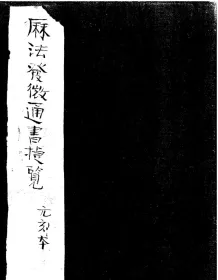 厤法發微通書捷覽
元刻本